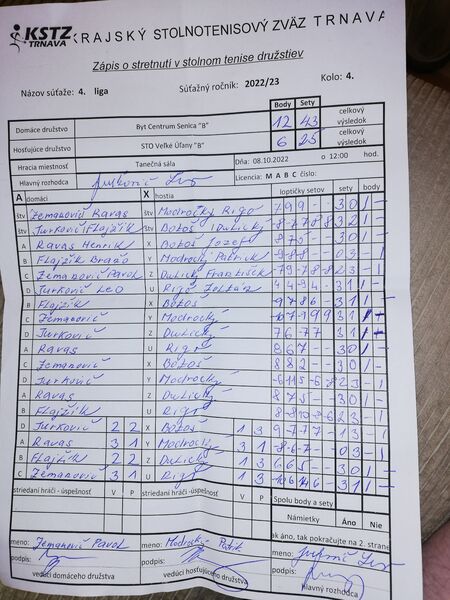 KSTZ
TRNAVA
KRAJSKÝ STOLNOTENISOVÝ ZVÄZ TRNAVA
Zápis o stretnutí v stolnom tenise družstiev
Názov súťaže: 4. liga Súťažný ročník: 2022/23 Kolo: 4.
Body Sety
Domáce družstvo Byt Centrum Senica "B" 12 43 celkový výsledok
Hosťujúce družstvo STO Veľké Úľany "B" 6 25 celkový výsledok
Hracia miestnosť Tanečná sála Dňa: 08.10.2022 o 12:00 hod.
Hlavný rozhodca Licencia: M A B C číslo:
A domáci X hostia loptičky setov sety body
štv Zemanovič Ravas štv Modročký Rigó 7 9 9 - - 3 0 1 -
štv Jurkovič Flajžík štv Božoš Dulický 3 2 1 -
A Ravas Henrik X Božoš Jozef 3 0 1 -
B Flajžík Braňo Y Modrocký Patrik 0 3 - 1
C Zemanovič Pavol Z Dulický František 2 3 - 1
D Jurkovič Leo U Rigó Zoltán 3 1 1 -
B Flajžík X Božoš 3 1 1 -
C Zemanovič Y Modrocký 3 1 1 -
D Jurkovič Z Dulický 3 1 1 -
A Ravas U Rigó 8 6 7 - - 3 0 1 -
C Zemanovič X Božoš 8 8 2 - - 3 0 1 -
D Jurkovič Y Modrocký 2 3 - 1
A Ravas Z Dulický 8 7 5 - - 3 0 1 -
B Flajžík U Rigó 2 3 - 1
D Jurkovič 2 2 X Božoš 1 3 1 3 - 1
A Ravas 3 1 Y Modrocký 3 1 0 3 - 1
B Flajžík 2 2 Z Dulický 1 3 6 6 5 - - 3 0 1 -
C Zemanovič 3 1 U Rigó 1 3 3 1 1 -
striedaní hráči - úspešnosť V P striedaní hráči - úspešnosť V P Spolu body a sety
Námietky Áno Nie
ak áno, tak pokračujte na 2. strane
meno: Zemanovič Pavol meno: Modrocký Patrik meno:
podpis: podpis: podpis:
vedúci domáceho družstva vedúci hosťujúceho družstva hlavný rozhodca